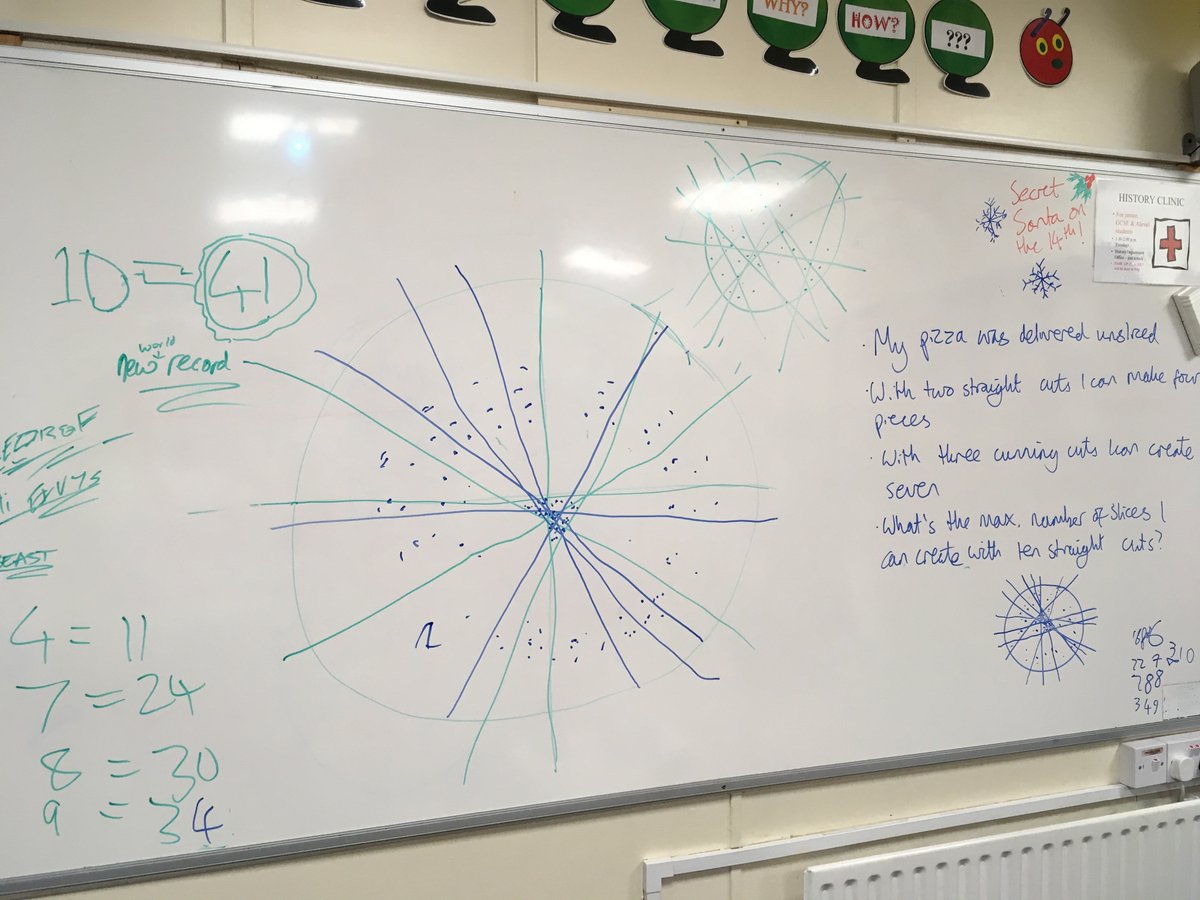 WHY?
HOW?
???
10 = 41
world
new record
EAST
4 = 11
7 = 24
8 = 30
9 = 34
Secret
Santa on
the 14th!
HISTORY CLINIC
• My pizza was delivered unsliced
• With two straight cuts I can make four
pieces
• With three cunning cuts I can create
seven
• What's the max. number of slices I
can create with ten straight cuts?
22 7
310
788
349